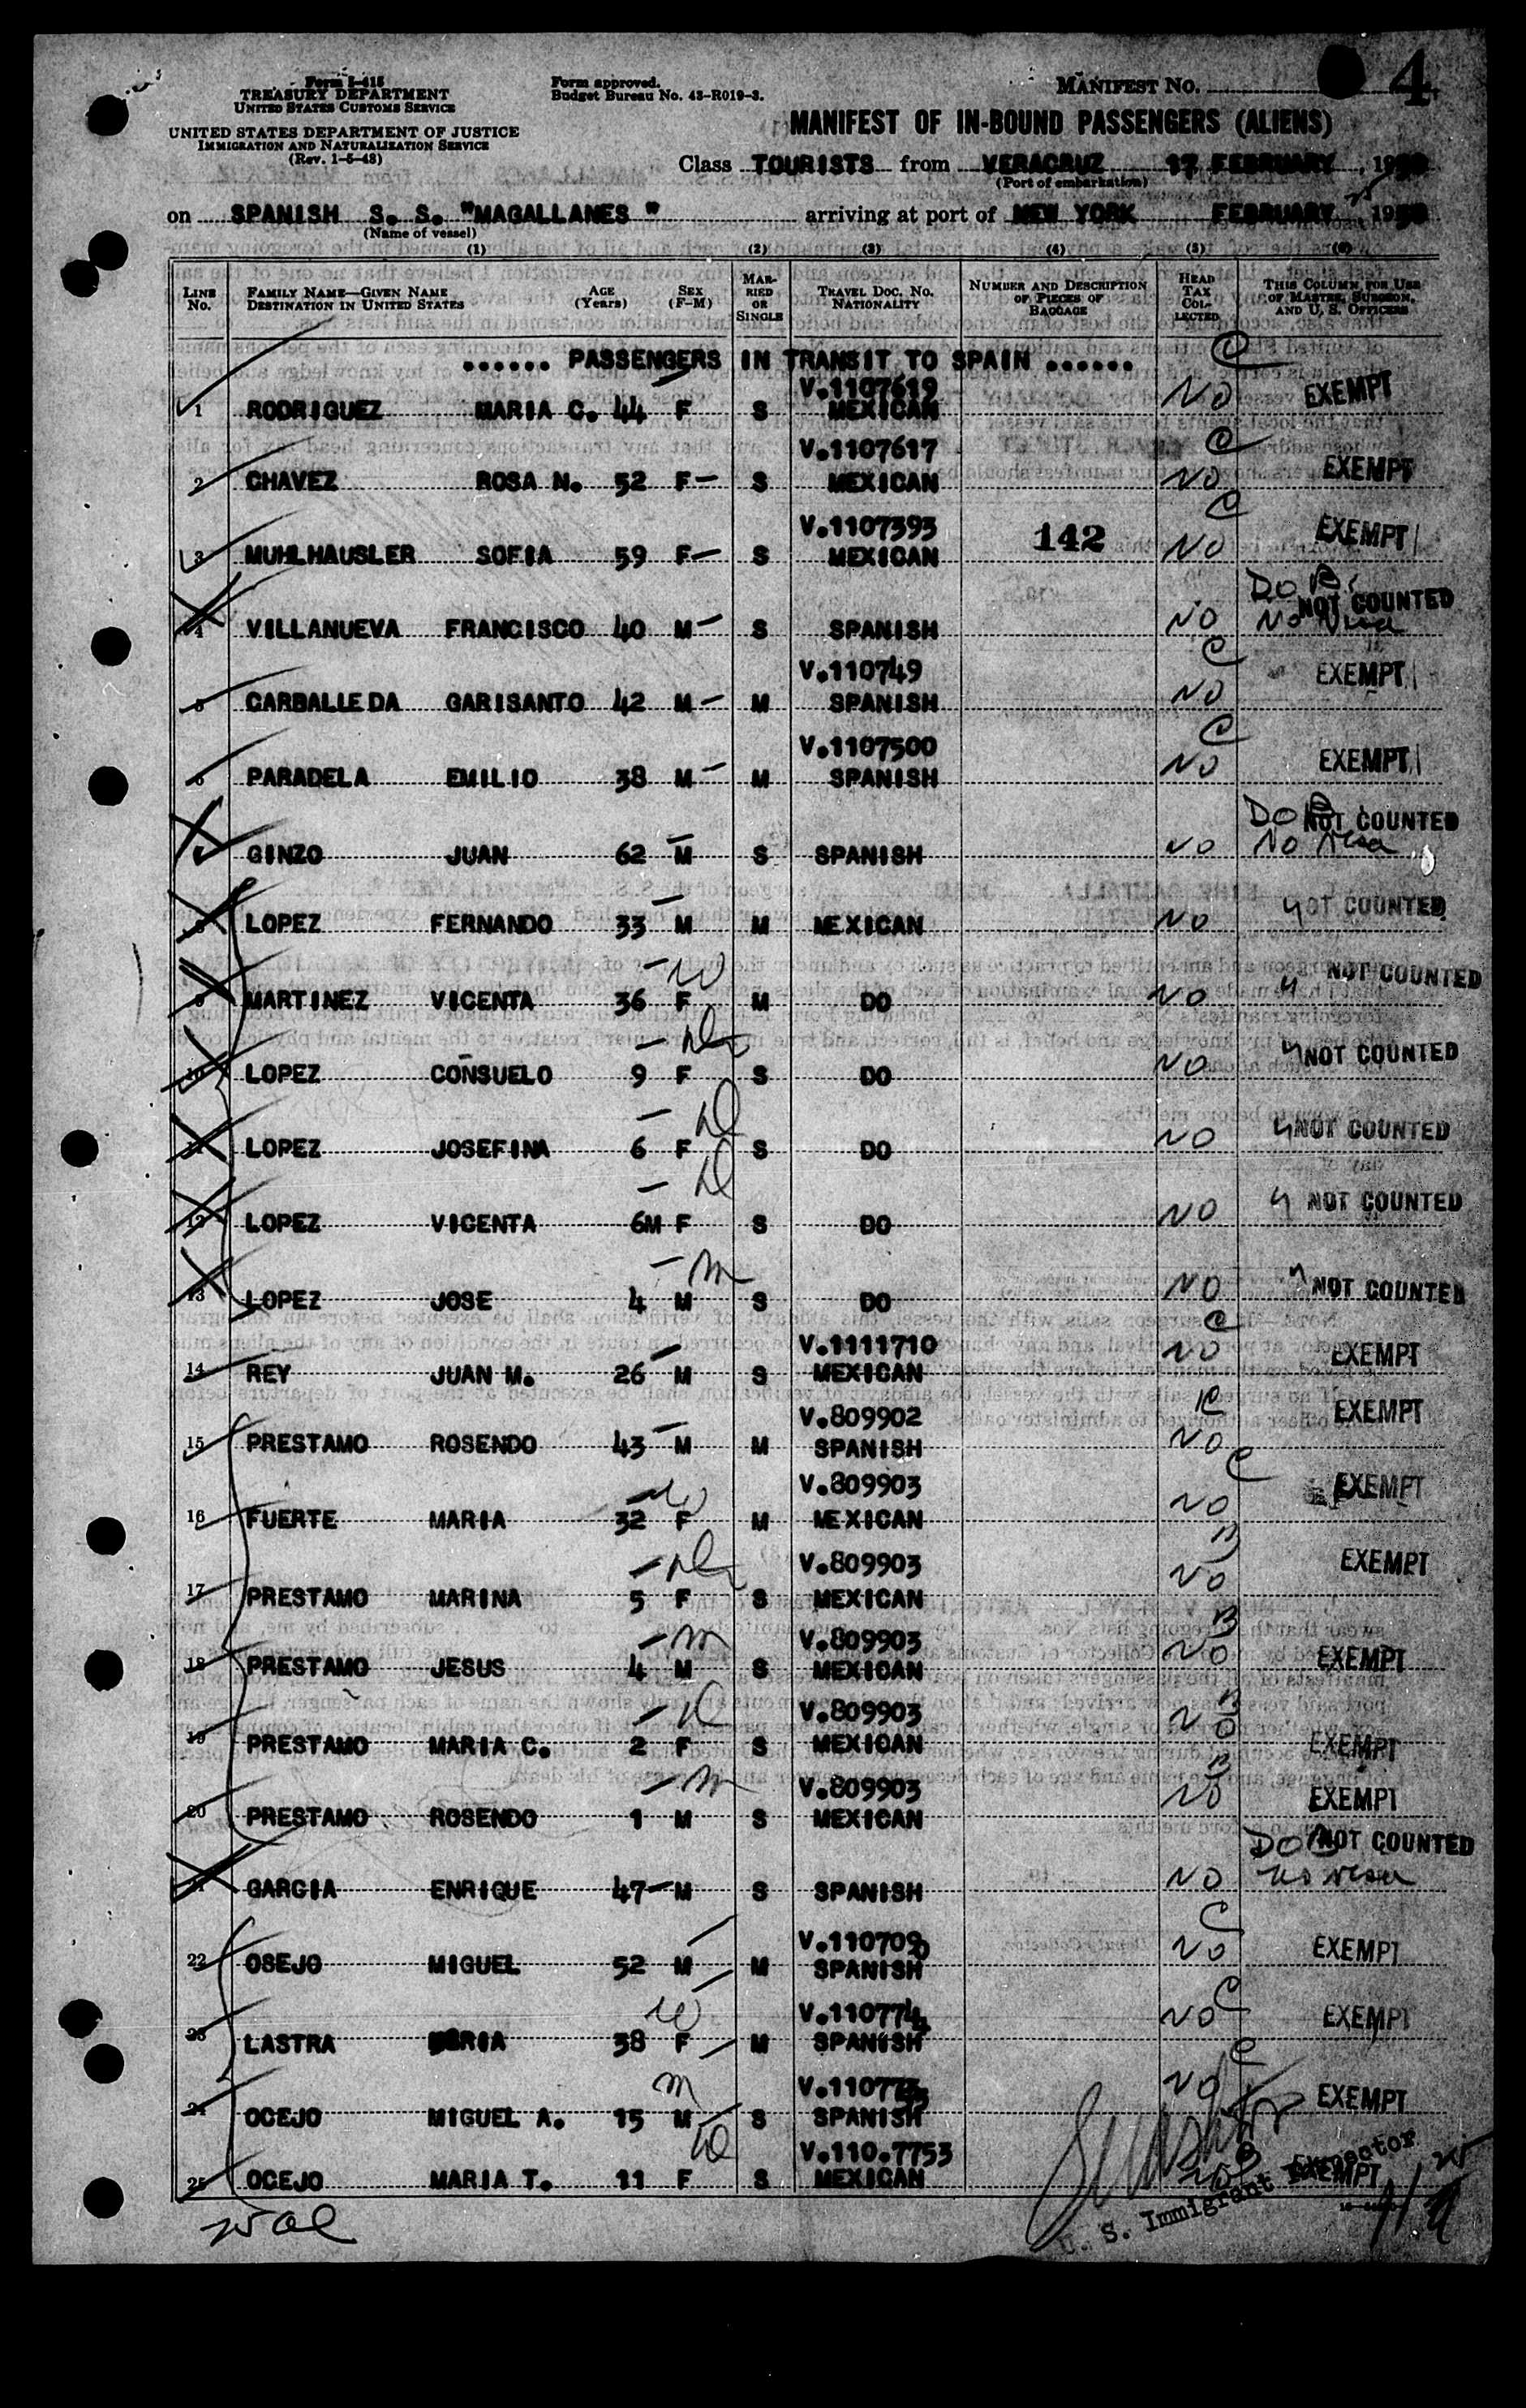 Form I-415
TREASURY DEPARTMENT
UNITED STATES CUSTOMS SERVICE
UNITED STATES DEPARTMENT OF JUSTICE
IMMIGRATION AND NATURALIZATION SERVICE
(Rev. 1-5-48)
Form approved.
Budget Bureau No. 43-R019-3.
MANIFEST No. 4
MANIFEST OF IN-BOUND PASSENGERS (ALIENS)
Class TOURISTS from VERACRUZ 17 FEBRUARY, 1950
(Port of embarkation)
on SPANISH S. S. "MAGALLANES" arriving at port of NEW YORK FEBRUARY 25 1950
(Name of vessel)
(1) (2) (3) (4) (5) (6)
LINE No. FAMILY NAME—GIVEN NAME DESTINATION IN UNITED STATES AGE (Years) SEX (F-M) MARRIED OR SINGLE TRAVEL DOC. NO. NATIONALITY NUMBER AND DESCRIPTION OF PIECES OF BAGGAGE HEAD TAX COLLECTED THIS COLUMN FOR USE OF MASTER, SURGEON, AND U. S. OFFICERS
...... PASSENGERS IN TRANSIT TO SPAIN ...... C
V.1107619
1 RODRIGUEZ MARIA C. 44 F S MEXICAN NO EXEMPT
V.1107617 C
2 CHAVEZ ROSA N. 52 F S MEXICAN NO EXEMPT
V.1107393 C
3 MUHLHAUSLER SOFIA 59 F S MEXICAN 142 NO EXEMPT
DOB. NOT COUNTED
4 VILLANUEVA FRANCISCO 40 M S SPANISH NO No Visa
V.110749 C
5 CARBALLEDA GARISANTO 42 M M SPANISH NO EXEMPT
V.1107500 C
6 PARADELA EMILIO 38 M M SPANISH NO EXEMPT
DOB NOT COUNTED
GINZO JUAN 62 M S SPANISH NO No Visa
8 LOPEZ FERNANDO 33 M M MEXICAN NO " NOT COUNTED
9 MARTINEZ VICENTA 36 F W M DO NO " NOT COUNTED
10 LOPEZ CONSUELO 9 F S DO NO " NOT COUNTED
11 LOPEZ JOSEFINA 6 F S DO NO " NOT COUNTED
12 LOPEZ VICENTA 6M F S DO NO " NOT COUNTED
13 LOPEZ JOSE 4 M m S DO NO " NOT COUNTED
V.1111710 C
14 REY JUAN M. 26 M S MEXICAN NO EXEMPT
V.809902
15 PRESTAMO ROSENDO 43 M M SPANISH NO EXEMPT
V.809903 C
16 FUERTE MARIA 32 F W M MEXICAN NO EXEMPT
V.809903 B
17 PRESTAMO MARINA 5 F S MEXICAN NO EXEMPT
V.809903 B
18 PRESTAMO JESUS 4 M m S MEXICAN NO EXEMPT
V.809903 B
19 PRESTAMO MARIA C. 2 F S MEXICAN NO EXEMPT
V.809903 B
20 PRESTAMO ROSENDO 1 M m S MEXICAN NO EXEMPT
DOB NOT COUNTED
21 GARCIA ENRIQUE 47 M S SPANISH NO no visa
C
22 OSEJO MIGUEL 52 M M SPANISH NO EXEMPT
C
23 LASTRA MARIA 38 F W M SPANISH NO EXEMPT
C
24 OCEJO MIGUEL A. 15 M m S SPANISH NO EXEMPT
V.110.7753 B
25 OCEJO MARIA T. 11 F S MEXICAN NO EXEMPT
U. S. Immigrant Inspector